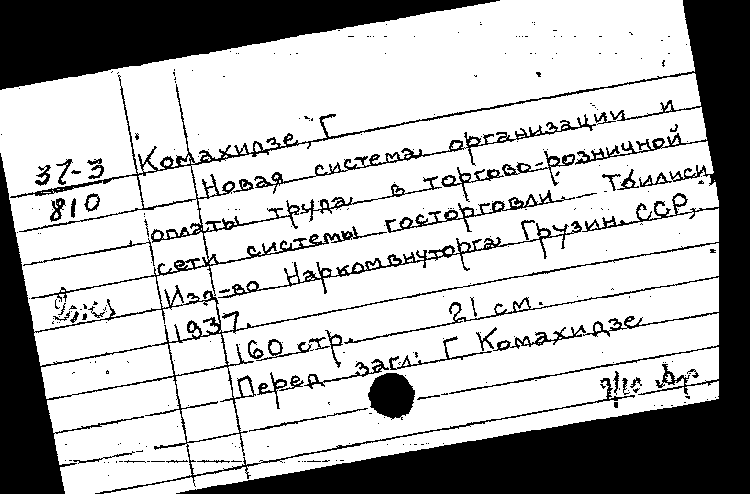 Комахидзе, Г
37-3
810
Новая система организации и
оплаты труда в торгово-розничной
сети системы госторговли. Тбилиси,
Изд-во Наркомвнуторга Грузин. ССР,
1937.
160 стр. 21 см.
Перед загл: Г. Комахидзе
9/10